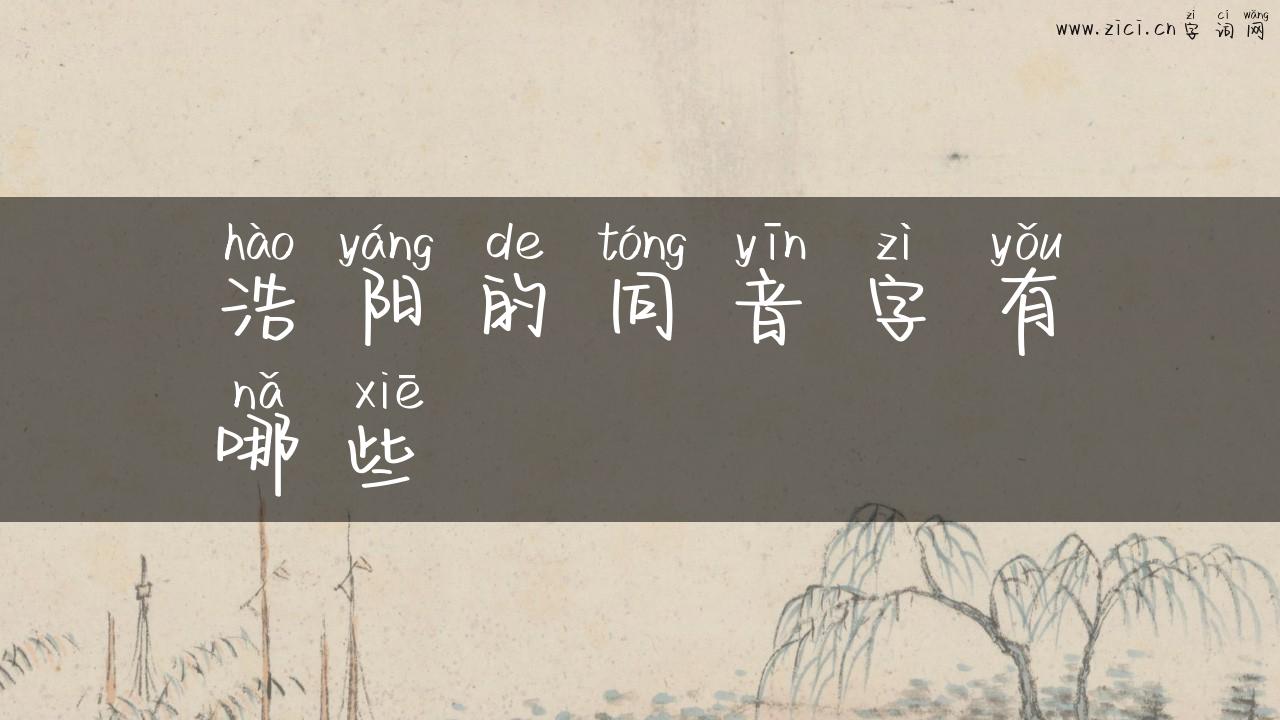 zì cí wǎng
www.zici.cn 字词网
hào yáng de tóng yīn zì yǒu
浩阳的同音字有
nǎ xiē
哪些